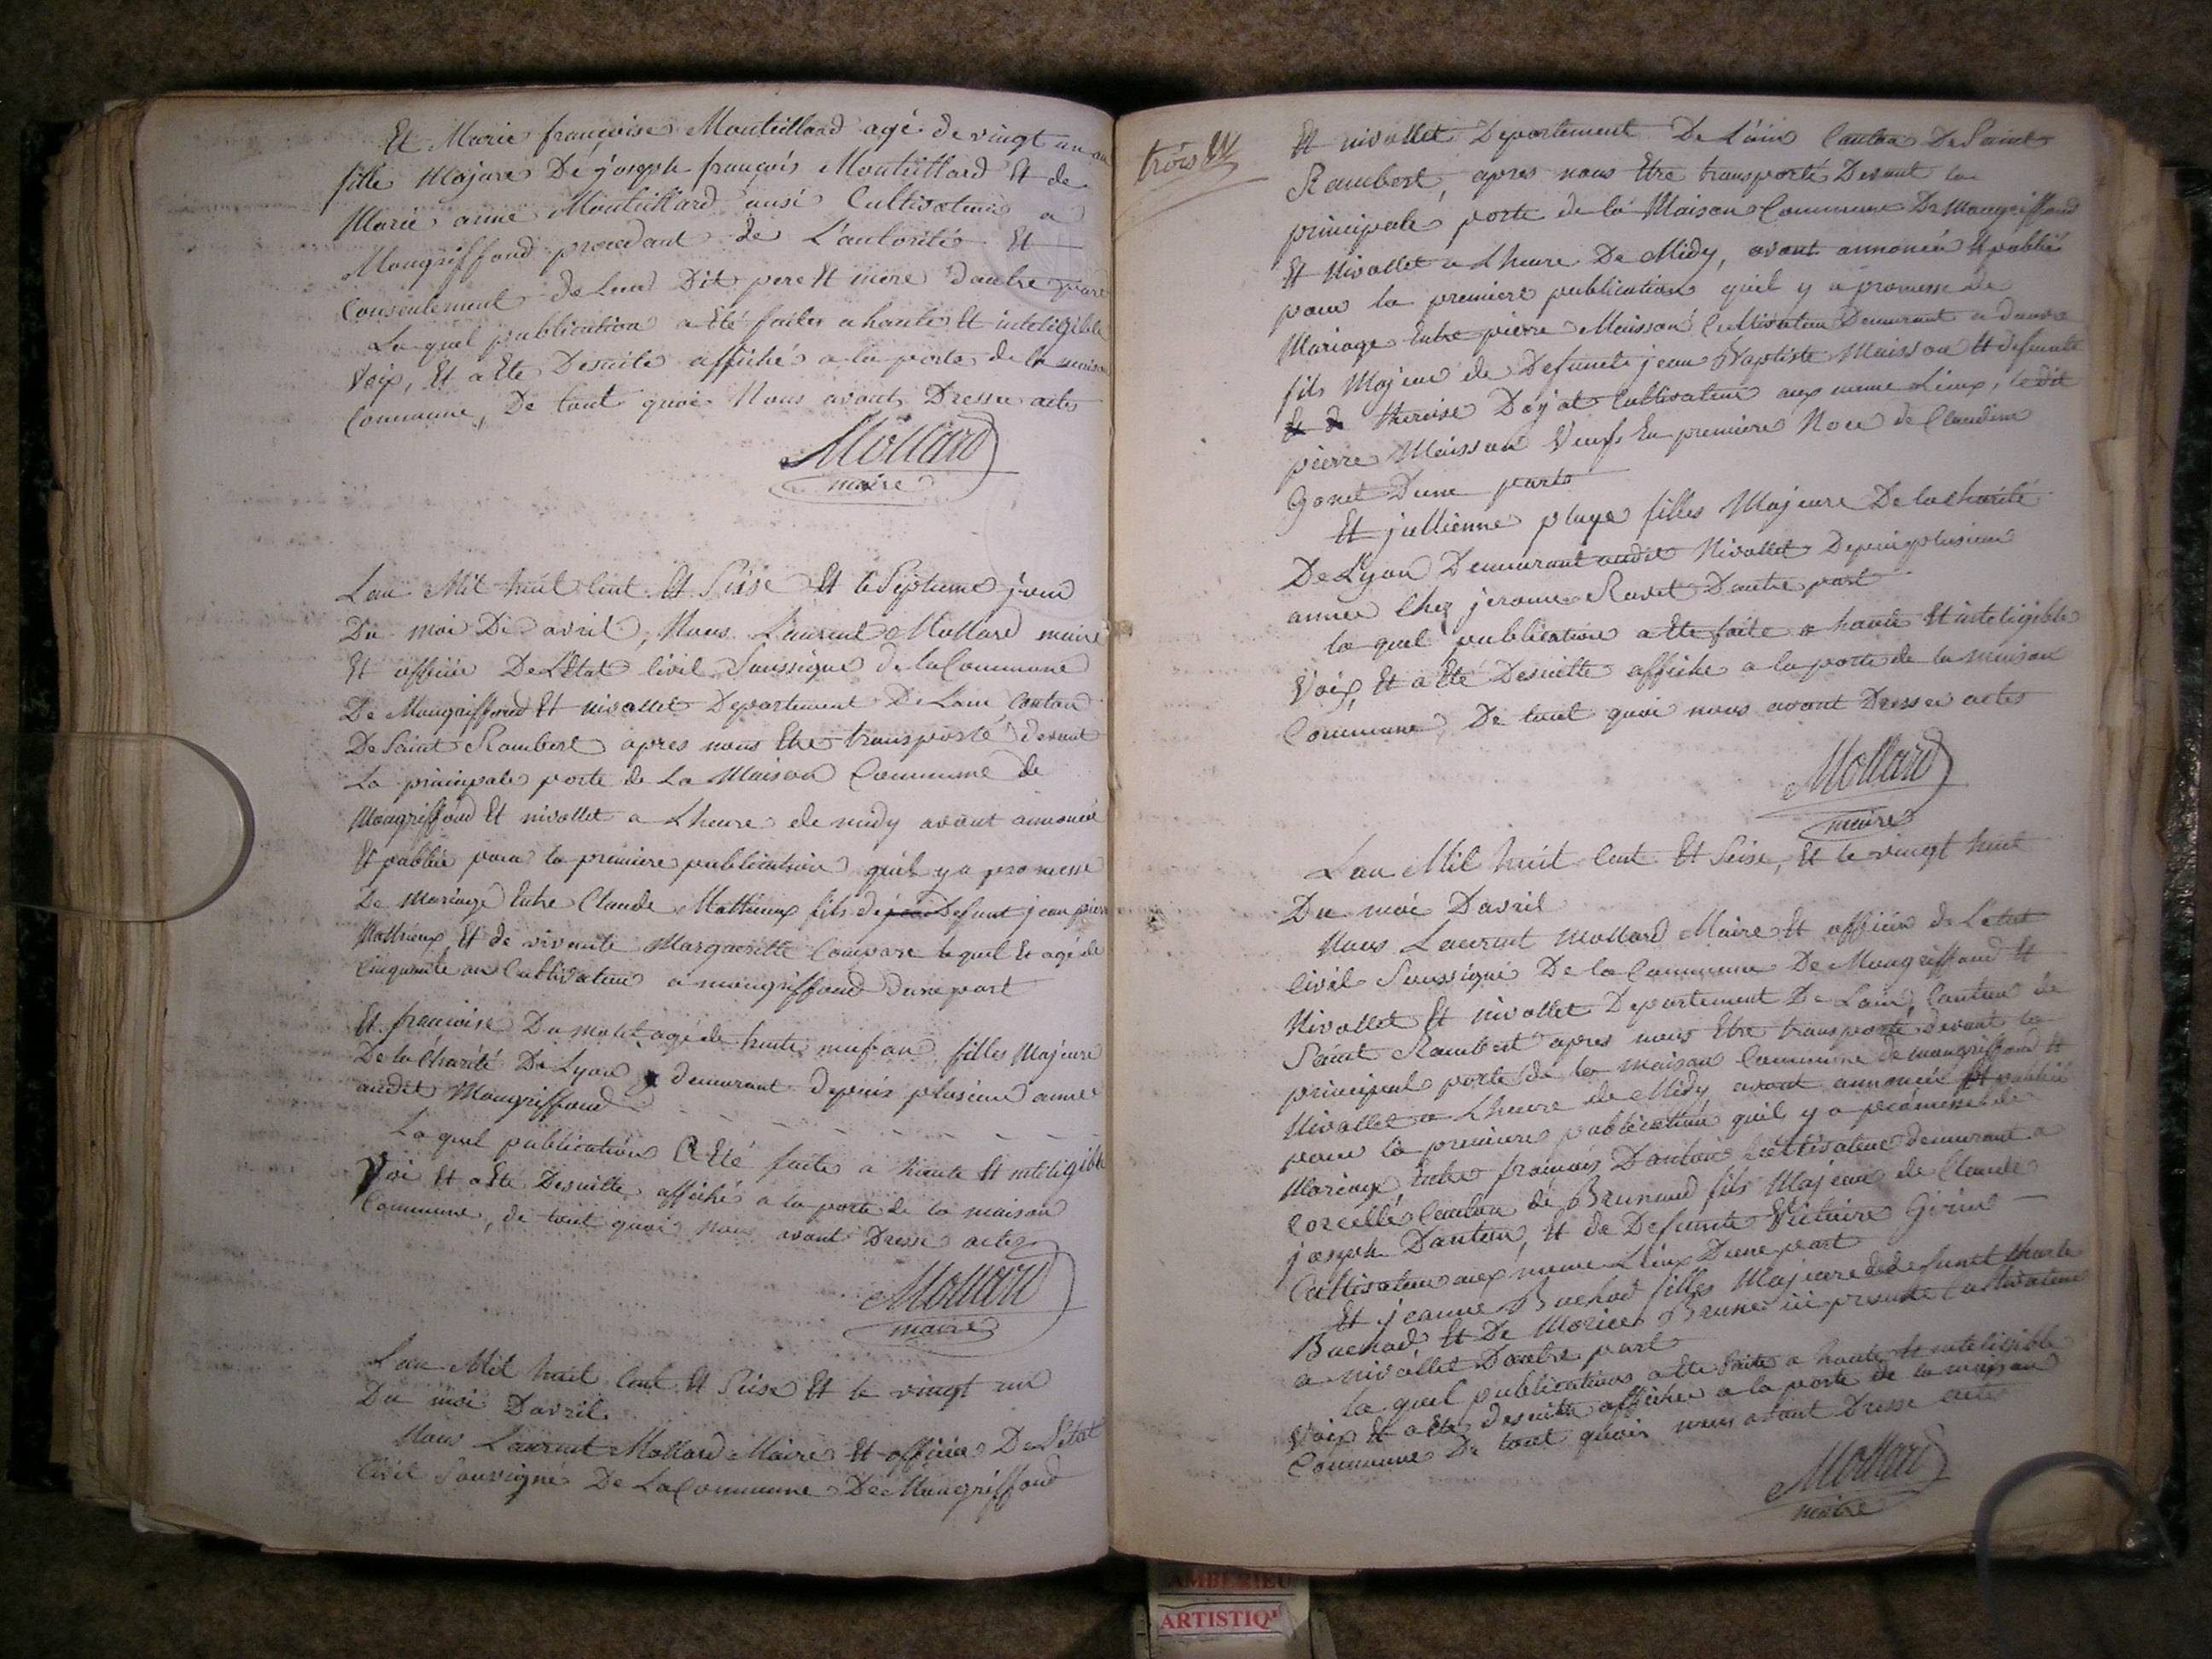 Et Marie françoise Monteillard agé de vingt un an
fille Majure De joseph françois Monteillard Et de
Marie anne Monteillard ausi Cultivateur a
Mongriffond procedant de L'autorité Et
Consentement de Leur Dit pere Et mere D'autre part
La quel publication a Eté faites a haute Et inteligible
Voix, Et a Ete Desuite affiché a la porte de la maison
Commune, De tout quoi Nous avont Dressée actes
Mollard
maire
Lan Mil huit Cent Et Seise Et le Septieme jour
Du moi D'avril, Nous Laurent Mollard maire
Et officier De L'Etat Civil Soussigne de la Commune
De Mongriffond Et nivollet Departement De Lain Canton
De Saint Rambert apres nous Etre transporté devant
La principale porte de La Maison Commune de
Mongriffond Et nivollet a Lheure de midy avont annoncé
Et publié pour la premiere publication quil y a promesse
De Mariage Entre Claude Mathieux fils de Defunt jean pierre
Mathieux Et de vivante Margueritte Compare le quel Et agé de
Cinquante an Cultivateur a mongriffond dune part
Et francoise Dumolet agé de trente neuf an filles Majeure
De la Charité De Lyon demeurant depuis plusieur anné
audit Mongriffond
La quel publication a Eté faite a haute Et inteligible
Voi Et a Eté Desuitte affiché a la porte de la maison
Commune, de tout quoi nous avont Dressé actes
Mollard
maire
Lan Mil huit Cent Et Seise Et le vingt un
Du moi Davril
Nous Laurent Mollard Maire Et officier De L'Etat
Civil Sousigné De La Commune De Mongriffond
trois
Et nivollet Departement De L'ain Canton De Saint
Rambert, apres nous Etre transporté Devant la
principale porte de la Maison Commune De Mongriffond
Et Nivollet a Lheure De Midy, avont annoncée Et publié
pour la premiere publication quil y a promesse de
Mariage Entre pierre Maisson Cultivateur Demeurant a
fils Majeur de Defunct jean Baptiste Maisson Et defunte
therèse Dojat Cultivateur aux meme Lieux, le dit
pierre Maisson Veuf En premiere Noce de Claudine
Gonet Dune part
Et jullienne pluye filles Majeure De la charité
De Lyon Demeurant audit Nivollet Depuis plusieur
année Chez jerome Ravet Dautre part
la quel publication a Ete faite a haute Et inteligible
Voix, Et a Eté Desuitte affiche a la porte de la maison
Commune, De tout quoi nous avont Dressée actes
Mollard
maire
Lan Mil huit Cent Et Seise, Et le vingt huit
Du moi Davril
Nous Laurent Mollard Maire Et officier de Letat
Civil Soussigné De la Commune De Mongriffond Et
Nivollet Et nivollet Departement De Lain, Canton de
Saint Rambert apres nous Etre transporté devant la
principal porte de la maison Commune de mongriffond Et
Nivollet a Lheure de Midy avont annoncée Et publié
pour la premiere publication quil y a promesse de
Mariage Entre françois Dantoin Cultivateur demeurant a
Corcelle Canton de Brunaud fils Majeur de Claude
joseph Dantoin, Et de Defunte Victoire Girin
Cultivateur aux meme Lieux Dune part
Et jeanne Bachod filles Majeure de defunct Charle
Bachod Et De Brune ici presente Cultivateur
a nivollet Dautre part
La quel publications a Ete faite a haute Et inteligible
Voix Et a Eté desuitte affiche a la porte de la maison
Commune De tout quoi nous avont Dressé actes
Mollard
maire
AMBERIEU
ARTISTIQU